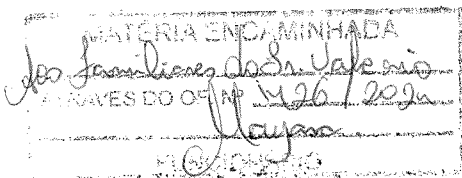 MATÉRIA ENCAMINHADA
Aos familiares do Sr. Valerio
ATRAVÉS DO OF. Nº 1426 / 202
Mayara
FUNCIONÁRIO